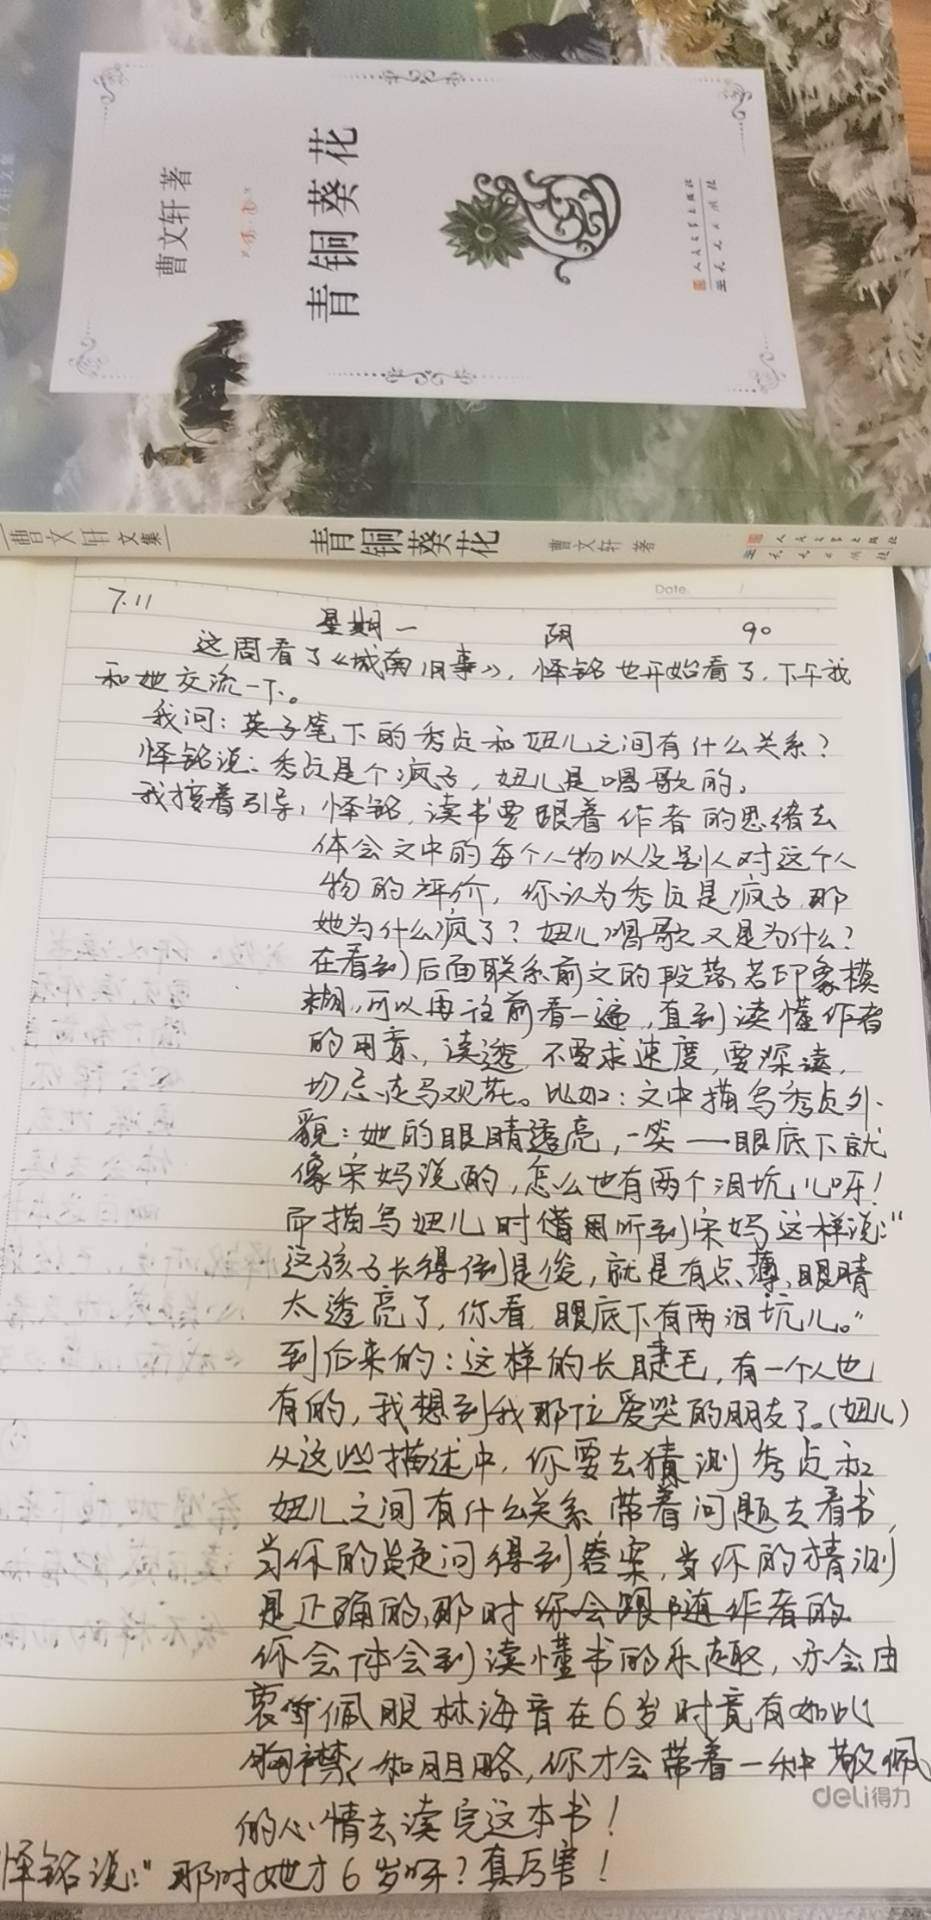 曹文轩 著
青铜葵花
人民文学出版社
天天出版社
曹文轩文集
青铜葵花
曹文轩 著
人民文学出版社
天天出版社
Date. /
7.11 星期一 阴 90
这周看了《城南旧事》，怿铭也开始看了，下午我
和她交流一下。
我问：英子笔下的秀贞和妞儿之间有什么关系？
怿铭说：秀贞是个疯子，妞儿是唱歌的。
我接着引导，怿铭，读书要跟着作者的思绪去
体会文中的每个人物以及别人对这个人
物的评价，你认为秀贞是疯子，那
她为什么疯了？妞儿唱歌又是为什么？
在看到后面联系前文的段落若印象模
糊，可以再往前看一遍，直到读懂作者
的用意、读透，不要求速度，要深读，
切忌走马观花。比如：文中描写秀贞外
貌：她的眼睛透亮，一笑——眼底下就
像宋妈说的，怎么也有两个泪坑儿呀！
而描写妞儿时借用听到宋妈这样说：“
这孩子长得倒是俊，就是有点薄，眼睛
太透亮了，你看，眼底下有两泪坑儿。”
到后来的：这样的长睫毛，有一个人也
有的，我想到我那位爱哭的朋友了。（妞儿）
从这些描述中，你要去猜测秀贞和
妞儿之间有什么关系，带着问题去看书，
当你的疑问得到答案，当你的猜测
是正确的，那时你会跟随作者的
你会体会到读懂书的乐趣，亦会由
衷佩服林海音在6岁时竟有如此
胸襟和胆略，你才会带着一种敬佩
的心情去读完这本书！
怿铭说：“那时她才6岁呀？真厉害！
deli得力